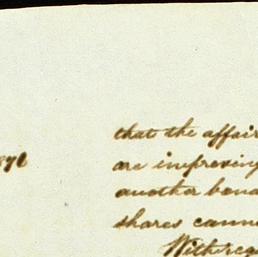 that the affair
are improving
another bond
shares cann
With reg